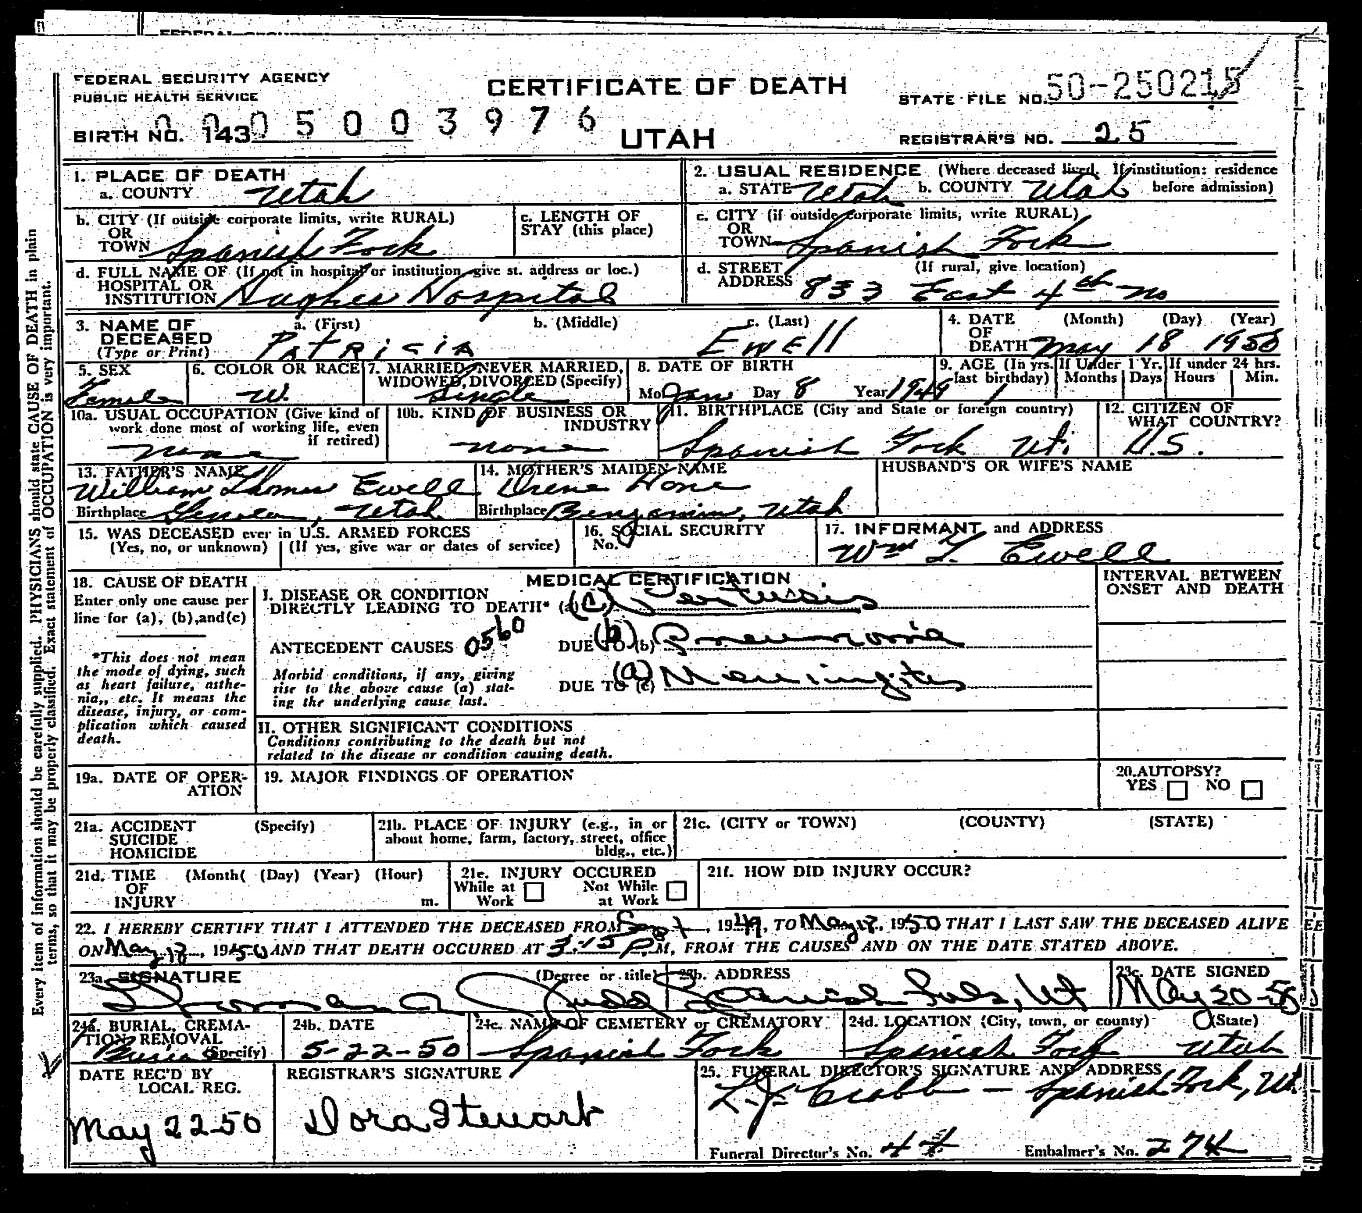 FEDERAL SECURITY AGENCY
PUBLIC HEALTH SERVICE
CERTIFICATE OF DEATH
STATE FILE NO. 50-250215
BIRTH NO. 143 0005003976
UTAH
REGISTRAR'S NO. 25
1. PLACE OF DEATH
a. COUNTY Utah
2. USUAL RESIDENCE (Where deceased lived. If institution: residence before admission)
a. STATE Utah b. COUNTY Utah
b. CITY (If outside corporate limits, write RURAL)
OR TOWN Spanish Fork
c. LENGTH OF STAY (this place)
c. CITY (if outside corporate limits, write RURAL)
OR TOWN Spanish Fork
d. FULL NAME OF (If not in hospital or institution, give st. address or loc.)
HOSPITAL OR INSTITUTION Hughes Hospital
d. STREET ADDRESS (If rural, give location)
833 East 4th No
3. NAME OF DECEASED (Type or Print)
a. (First) Patricia b. (Middle) c. (Last) Ewell
4. DATE OF DEATH (Month) (Day) (Year)
May 18 1950
5. SEX Female
6. COLOR OR RACE W.
7. MARRIED, NEVER MARRIED, WIDOWED, DIVORCED (Specify) Single
8. DATE OF BIRTH
Mo. Jan Day 8 Year 1949
9. AGE (In yrs. last birthday) 1
If Under 1 Yr. Months Days
If under 24 hrs. Hours Min.
10a. USUAL OCCUPATION (Give kind of work done most of working life, even if retired) none
10b. KIND OF BUSINESS OR INDUSTRY none
11. BIRTHPLACE (City and State or foreign country)
Spanish Fork Ut.
12. CITIZEN OF WHAT COUNTRY?
U.S.
13. FATHER'S NAME
William Thomas Ewell
Birthplace Utah
14. MOTHER'S MAIDEN NAME
Irene Hone
Birthplace Benjamin, Utah
HUSBAND'S OR WIFE'S NAME
15. WAS DECEASED ever in U.S. ARMED FORCES
(Yes, no, or unknown) (If yes, give war or dates of service)
16. SOCIAL SECURITY No.
17. INFORMANT and ADDRESS
Wm T. Ewell
18. CAUSE OF DEATH
Enter only one cause per line for (a), (b), and (c)
*This does not mean the mode of dying, such as heart failure, asthenia,, etc. It means the disease, injury, or complication which caused death.
MEDICAL CERTIFICATION
I. DISEASE OR CONDITION DIRECTLY LEADING TO DEATH* (a) (c) Pertussis
ANTECEDENT CAUSES 0560
DUE TO (b) (b) Pneumonia
Morbid conditions, if any, giving rise to the above cause (a) stating the underlying cause last.
DUE TO (c) (a) Meningites
INTERVAL BETWEEN ONSET AND DEATH
II. OTHER SIGNIFICANT CONDITIONS
Conditions contributing to the death but not related to the disease or condition causing death.
19a. DATE OF OPERATION
19. MAJOR FINDINGS OF OPERATION
20. AUTOPSY?
YES NO
21a. ACCIDENT SUICIDE HOMICIDE (Specify)
21b. PLACE OF INJURY (e.g., in or about home, farm, factory, street, office bldg., etc.)
21c. (CITY or TOWN) (COUNTY) (STATE)
21d. TIME OF INJURY (Month( (Day) (Year) (Hour) m.
21e. INJURY OCCURED
While at Work Not While at Work
21f. HOW DID INJURY OCCUR?
22. I HEREBY CERTIFY THAT I ATTENDED THE DECEASED FROM Sept, 1949, TO May 18, 1950 THAT I LAST SAW THE DECEASED ALIVE
ON May 18, 1950 AND THAT DEATH OCCURED AT 3:15 P.M, FROM THE CAUSES AND ON THE DATE STATED ABOVE.
23a. SIGNATURE (Degree or title)
Judd
23b. ADDRESS
Spanish Fork, Ut
23c. DATE SIGNED
May 20-50
24a. BURIAL, CREMATION, REMOVAL (Specify) Burial
24b. DATE 5-22-50
24c. NAME OF CEMETERY or CREMATORY
Spanish Fork
24d. LOCATION (City, town, or county) (State)
Spanish Fork Utah
DATE REC'D BY LOCAL REG.
May 22 50
REGISTRAR'S SIGNATURE
Dora Stewart
25. FUNERAL DIRECTOR'S SIGNATURE AND ADDRESS
L.J. Crabb - Spanish Fork, Ut.
Funeral Director's No. 44 Embalmer's No. 274
Every item of information should be carefully supplied. PHYSICIANS should state CAUSE OF DEATH in plain
terms, so that it may be properly classified. Exact statement of OCCUPATION is very important.